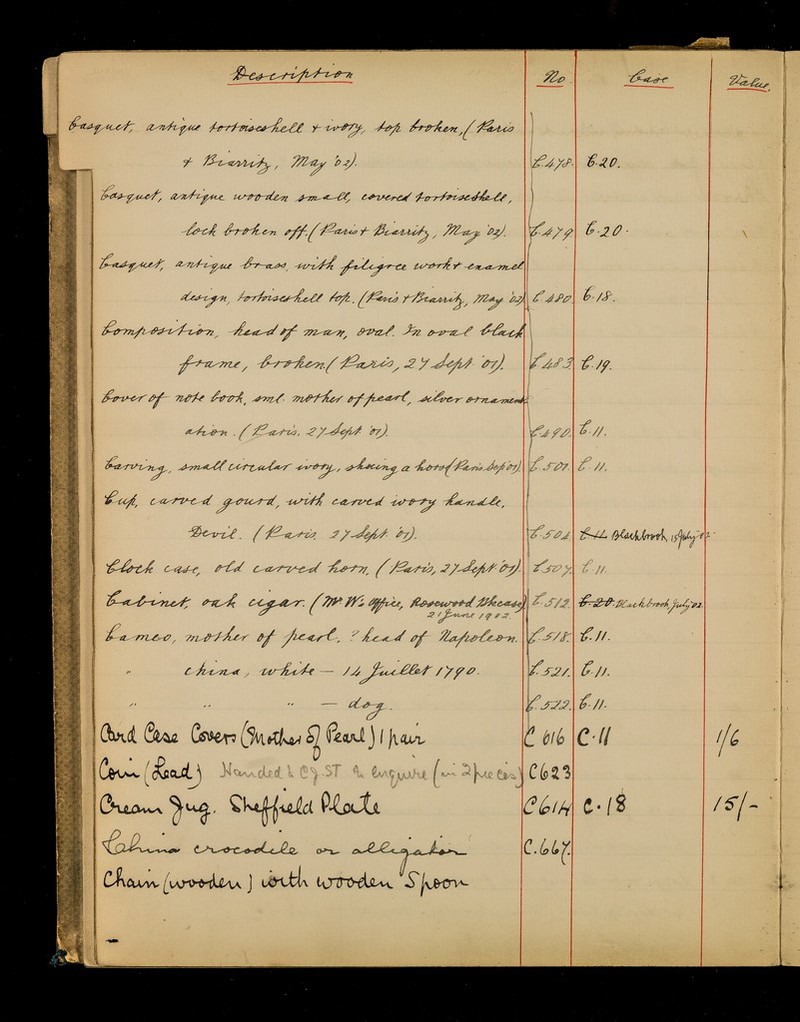 Description No Case Value.
Casquet, antique tortoiseshell & ivory, top broken, (Paris
& Biarritz, May '02). C.478. C.20.
Casquet, antique wooden small, covered tortoiseshell,
lock broken off. (Paris & Biarritz, May '02). C.479 C.20.
Casquet, antique brass, with filigree work & enamel
design, tortoiseshell top. (Paris & Biarritz, May '02) C.480 C.18.
Composition, head of man, oval. In oval black
frame, broken (Paris, 27 Sept '01). C.483. C.19.
Cover of note book, sml. mother of pearl, silver ornament-
ation. (Paris. 27 Sept '01). C.490. C.11.
Carving, small circular ivory, shoeing a horse (Paris. Sep '01). C.501. C.11.
Cup, carved gourd, with carved ivory handle,
Devil. (Paris. 27 Sept '01). C.504 C.11. Blackbrook, 15 July '02
Clock case, old carved horn. (Paris, 27 Sept '01). C.507. C.11.
Cabinet, oak cigar. (Mr W's Office, Rosewood Shcase) C.512. C.20. Blackbrook July '02.
21 June 1902.
Cameo, mother of pearl. ? head of Napoleon. C.518. C.11.
" china, white — 14 Juillet 1790. C.521. C.11.
" " " — dog. C.522. C.11.
Card Case Covers (Mother of Pearl) 1 pair C 616 C.11 1/6
Coin (Lead) Handed to CJ.ST to enquire (in 2 pieces) C623
Cream Jug. Sheffield Plate C614 C.18 15/-
China crocodile or alligator C.667.
Chain (wooden) with wooden Spoon